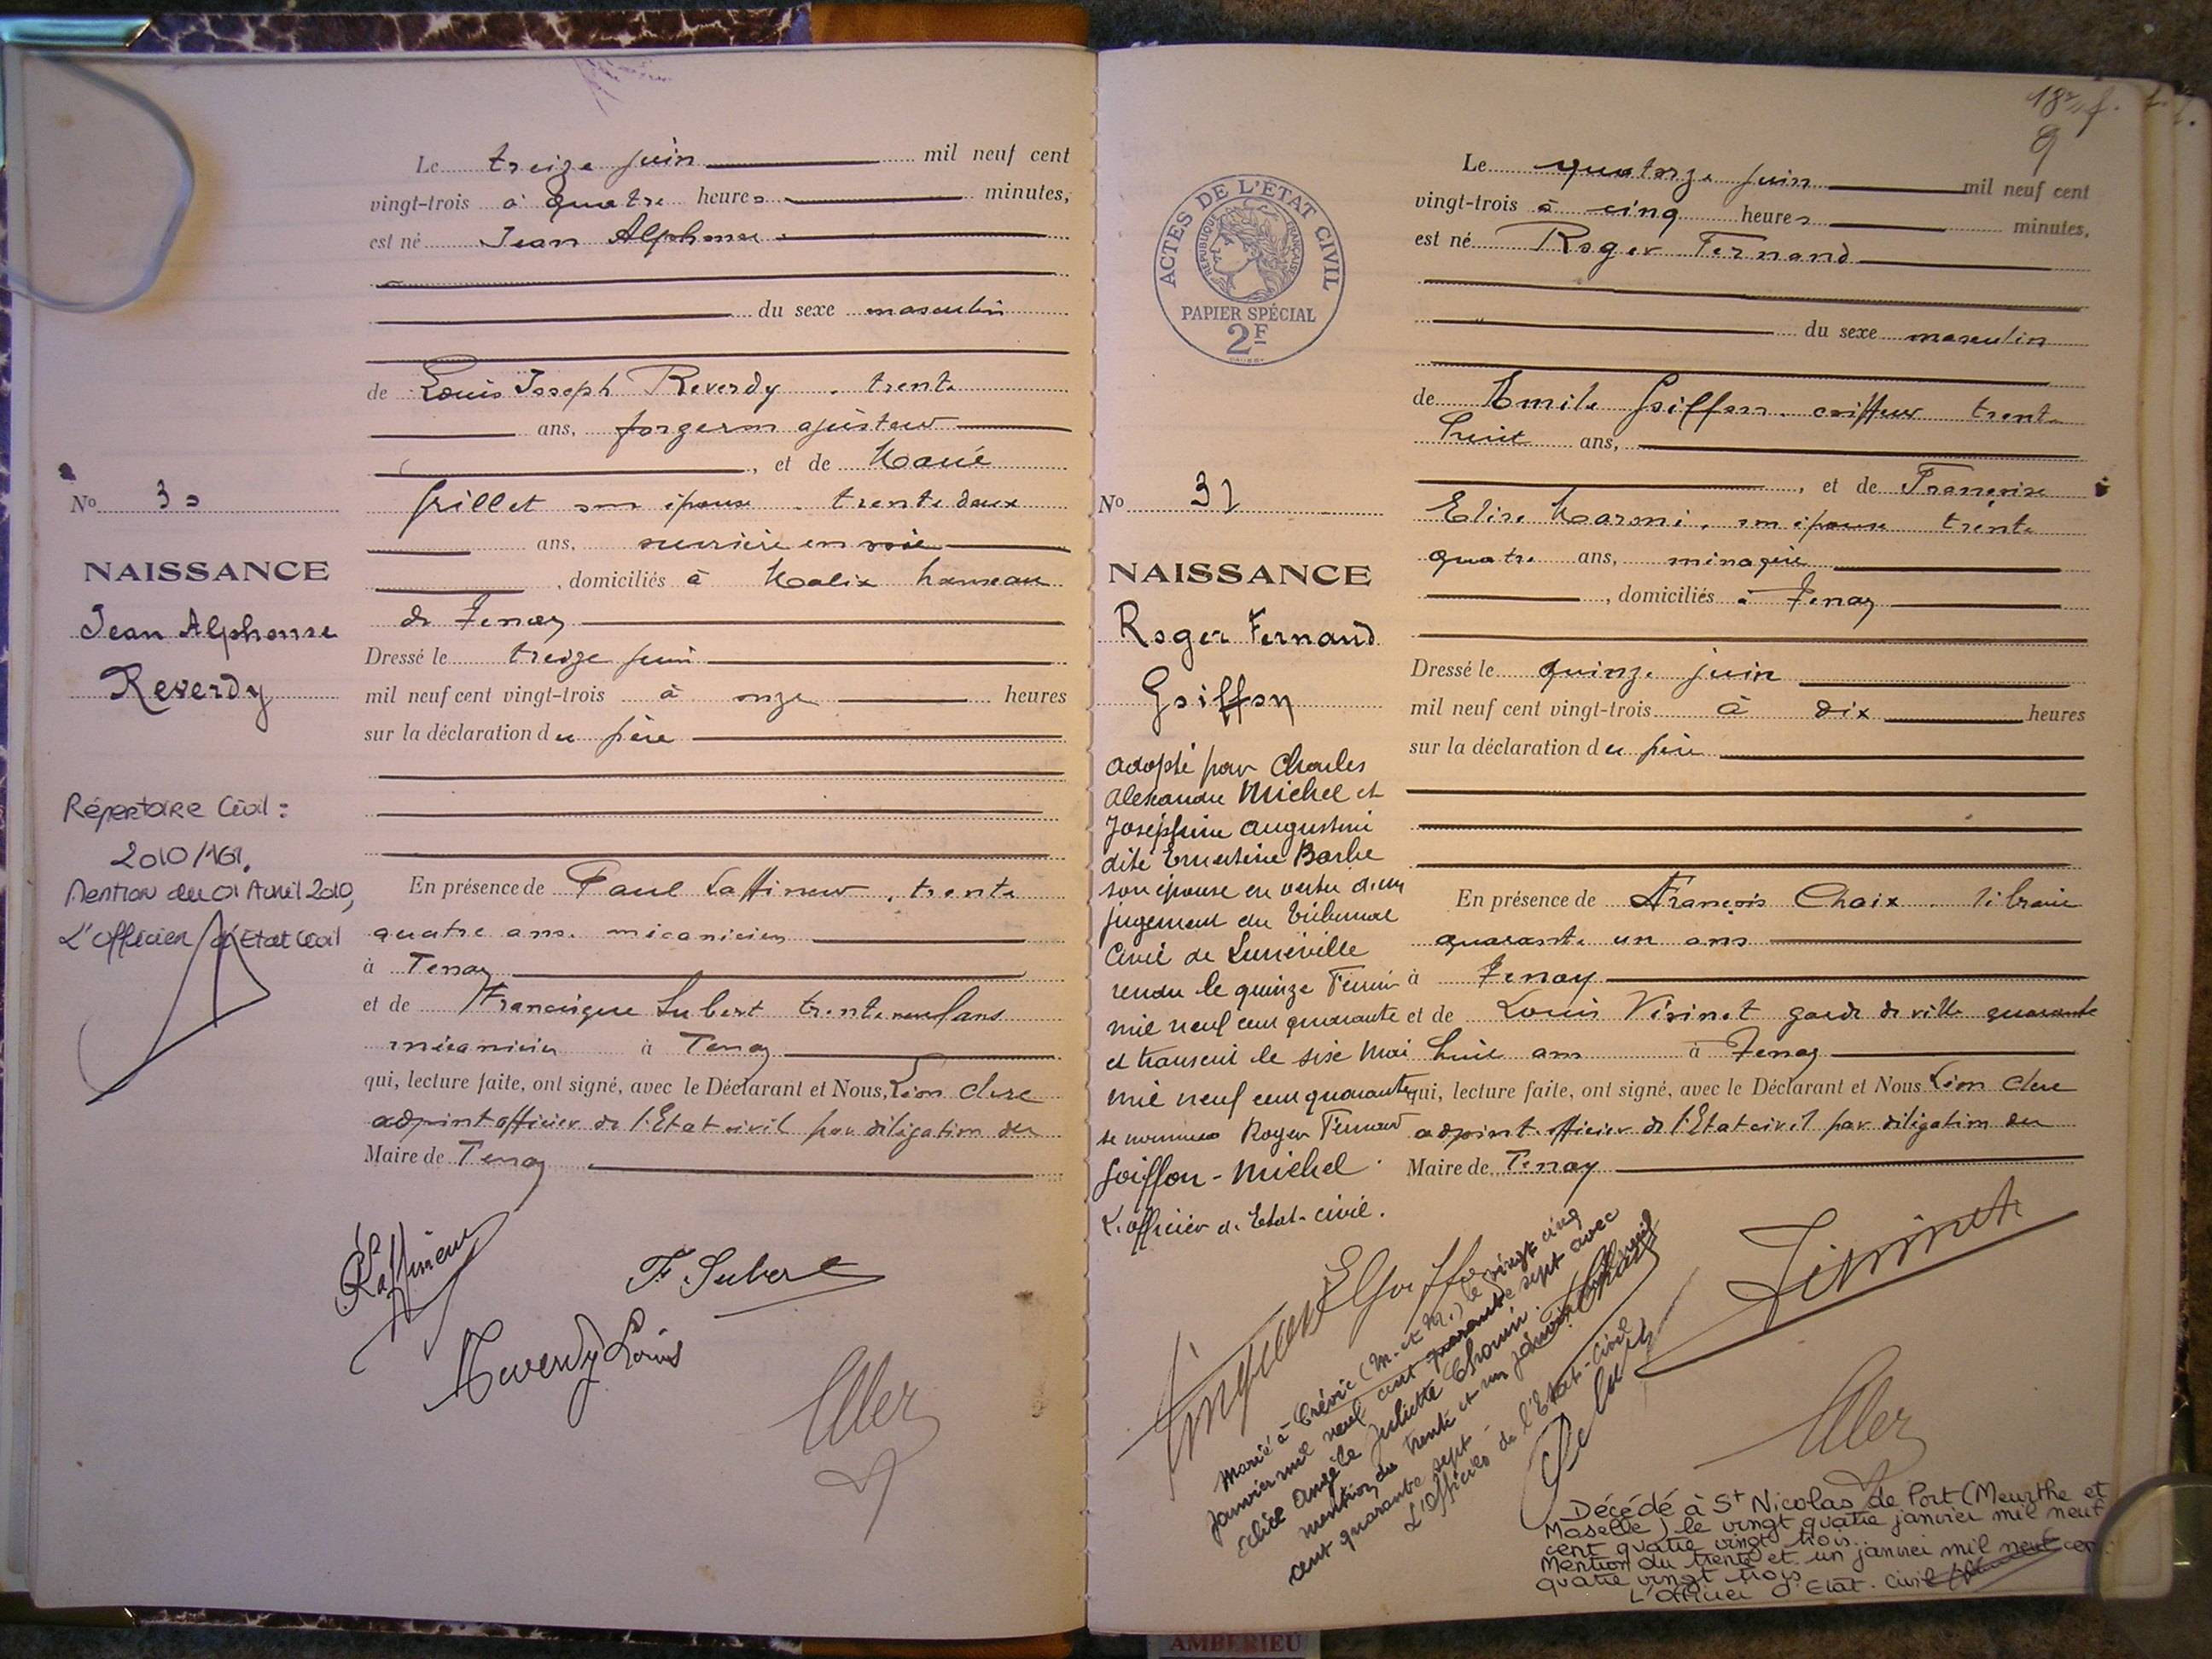 Le treize juin mil neuf cent
vingt-trois à quatre heures minutes,
est né Jean Alphonse
du sexe masculin
de Louis Joseph Reverdy, trente
ans, forgeron ajusteur
, et de Marie
Grillet son épouse, trente deux
ans, ouvrière en soie
, domiciliés à Malix hameau
de Tenay
Dressé le treize juin
mil neuf cent vingt-trois à onze heures
sur la déclaration du père
En présence de Paul Laffineur, trente
quatre ans, mécanicien
à Tenay
et de Francisque Subert trente neuf ans
mécanicien à Tenay
qui, lecture faite, ont signé, avec le Déclarant et Nous, Léon
adjoint officier de l'Etat civil par délégation du
Maire de Tenay
No 30
NAISSANCE
Jean Alphonse
Reverdy
Répertoire Civil :
2010/161.
Mention du 01 Avril 2010,
L'officier d'Etat Civil
Laffineur
F. Subert
Reverdy Louis
9
Le quatorze juin mil neuf cent
vingt-trois à cinq heures minutes,
est né Roger Fernand
du sexe masculin
de Emile Goiffon, coiffeur trente
huit ans,
, et de Françoise
Elise Marmi, son épouse trente
quatre ans, ménagère
, domiciliés à Tenay
Dressé le quinze juin
mil neuf cent vingt-trois à dix heures
sur la déclaration du père
En présence de François Chaix, libraire
quarante un ans
à Tenay
et de Louis garde de ville quarante
huit ans à Tenay
qui, lecture faite, ont signé, avec le Déclarant et Nous Léon
adjoint officier de l'Etat civil par délégation du
Maire de Tenay
ACTES DE L'ETAT CIVIL
REPUBLIQUE FRANÇAISE
PAPIER SPÉCIAL
2F
No 31
NAISSANCE
Roger Fernand
Goiffon
adopté par Charles
Alexandre Michel et
Joséphine Augustine
dite Ernestine Barbe
son épouse en vertu d'un
jugement du Tribunal
Civil de Lunéville
rendu le quinze Février
mil neuf cent quarante
et transcrit le six Mai
mil neuf cent quarante
se nommera Roger Fernand
Goiffon-Michel.
L'officier de l'Etat-civil.
Marié à Crévic (M.-et-M.) le vingt cinq
janvier mil neuf cent quarante sept avec
Alice Angèle Juliette
mention du trente et un janvier mil neuf
cent quarante sept -
L'Officier de l'Etat-Civil
Décédé à St Nicolas de Port (Meurthe et
Moselle) le vingt quatre janvier mil neuf
cent quatre vingt trois.
Mention du trente et un janvier mil neuf cent
quatre vingt trois
L'Officier d'Etat. Civil
AMBERIEU